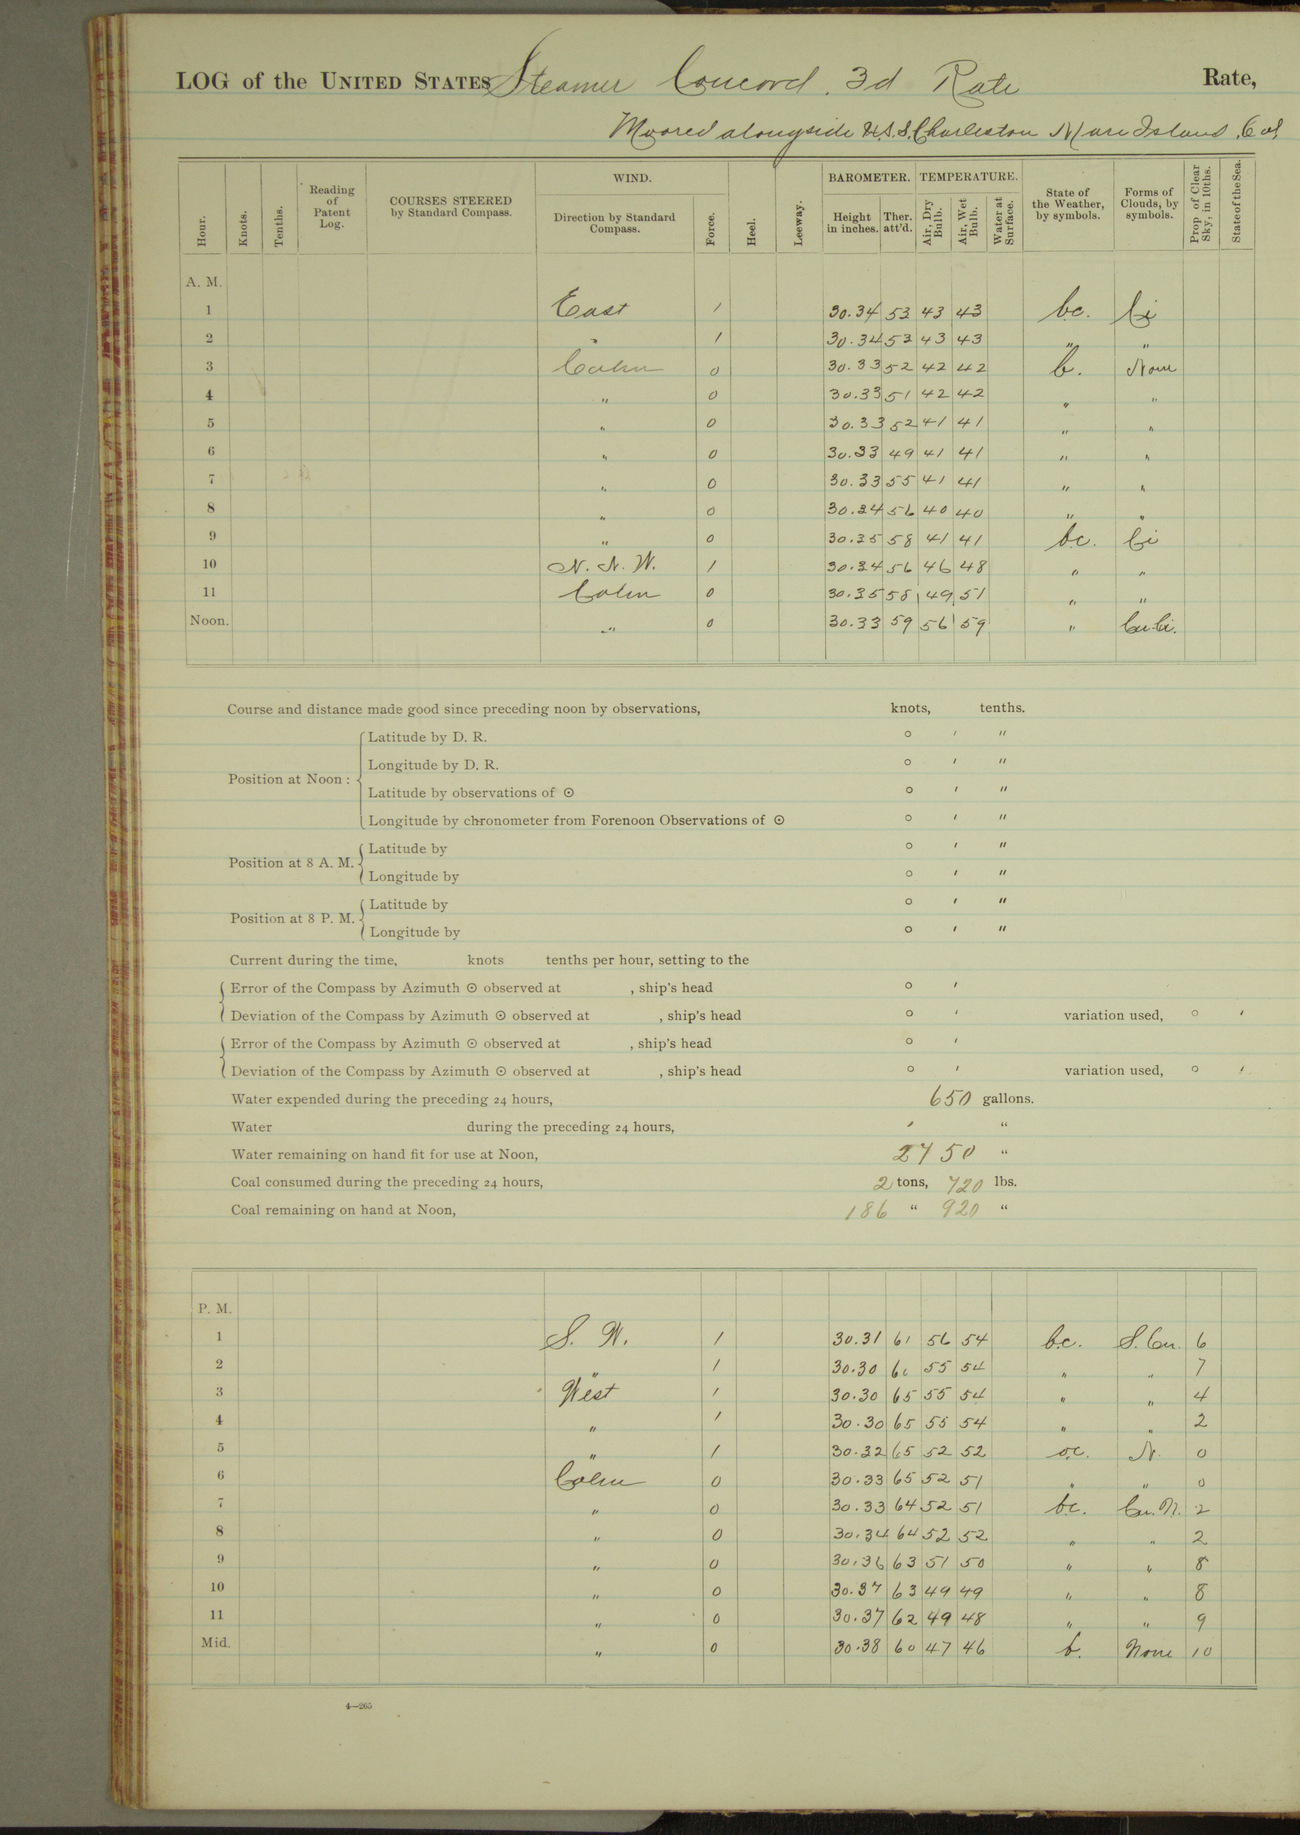 LOG of the UNITED STATES Steamer Concord. 3d Rate Rate,
Moored alongside U.S.S. Charleston Mare Island, Cal,
WIND. BAROMETER. TEMPERATURE.
Hour. Knots. Tenths. Reading of Patent Log. COURSES STEERED by Standard Compass. Direction by Standard Compass. Force. Heel. Leeway. Height in inches. Ther. att'd. Air, Dry Bulb. Air, Wet Bulb. Water at Surface. State of the Weather, by symbols. Forms of Clouds, by symbols. Prop. of Clear Sky, in 10ths. State of the Sea.
A. M.
1 East 1 30.34 53 43 43 bc. Ci
2 " 1 30.34 53 43 43 " "
3 Calm 0 30.33 52 42 42 b. None
4 " 0 30.33 51 42 42 " "
5 " 0 30.33 52 41 41 " "
6 " 0 30.33 49 41 41 " "
7 " 0 30.33 55 41 41 " "
8 " 0 30.34 56 40 40 " "
9 " 0 30.35 58 41 41 bc. Ci
10 N. N. W. 1 30.34 56 46 48 " "
11 Calm 0 30.35 58 49 51 " "
Noon. " 0 30.33 59 56 59 " Cu.Ci.
Course and distance made good since preceding noon by observations, knots, tenths.
Latitude by D. R. ° ′ ″
Longitude by D. R. ° ′ ″
Position at Noon :
Latitude by observations of ☉ ° ′ ″
Longitude by chronometer from Forenoon Observations of ☉ ° ′ ″
Latitude by ° ′ ″
Position at 8 A. M.
Longitude by ° ′ ″
Latitude by ° ′ ″
Position at 8 P. M.
Longitude by ° ′ ″
Current during the time, knots tenths per hour, setting to the
Error of the Compass by Azimuth ☉ observed at , ship's head ° ′
Deviation of the Compass by Azimuth ☉ observed at , ship's head ° ′ variation used, ° ′
Error of the Compass by Azimuth ☉ observed at , ship's head ° ′
Deviation of the Compass by Azimuth ☉ observed at , ship's head ° ′ variation used, ° ′
Water expended during the preceding 24 hours, 650 gallons.
Water during the preceding 24 hours, ′ "
Water remaining on hand fit for use at Noon, 2750 "
Coal consumed during the preceding 24 hours, 2 tons, 720 lbs.
Coal remaining on hand at Noon, 186 " 920 "
P. M.
1 S. W. 1 30.31 61 56 54 b.c. S.Cu. 6
2 " 1 30.30 60 55 54 " " 7
3 West 1 30.30 65 55 54 " " 4
4 " 1 30.30 65 55 54 " " 2
5 " 1 30.32 65 52 52 o.c. N. 0
6 Calm 0 30.33 65 52 51 " " 0
7 " 0 30.33 64 52 51 bc. Cu.N. 2
8 " 0 30.34 64 52 52 " " 2
9 " 0 30.36 63 51 50 " " 8
10 " 0 30.37 63 49 49 " " 8
11 " 0 30.37 62 49 48 " " 9
Mid. " 0 30.38 60 47 46 b. None 10
4—265